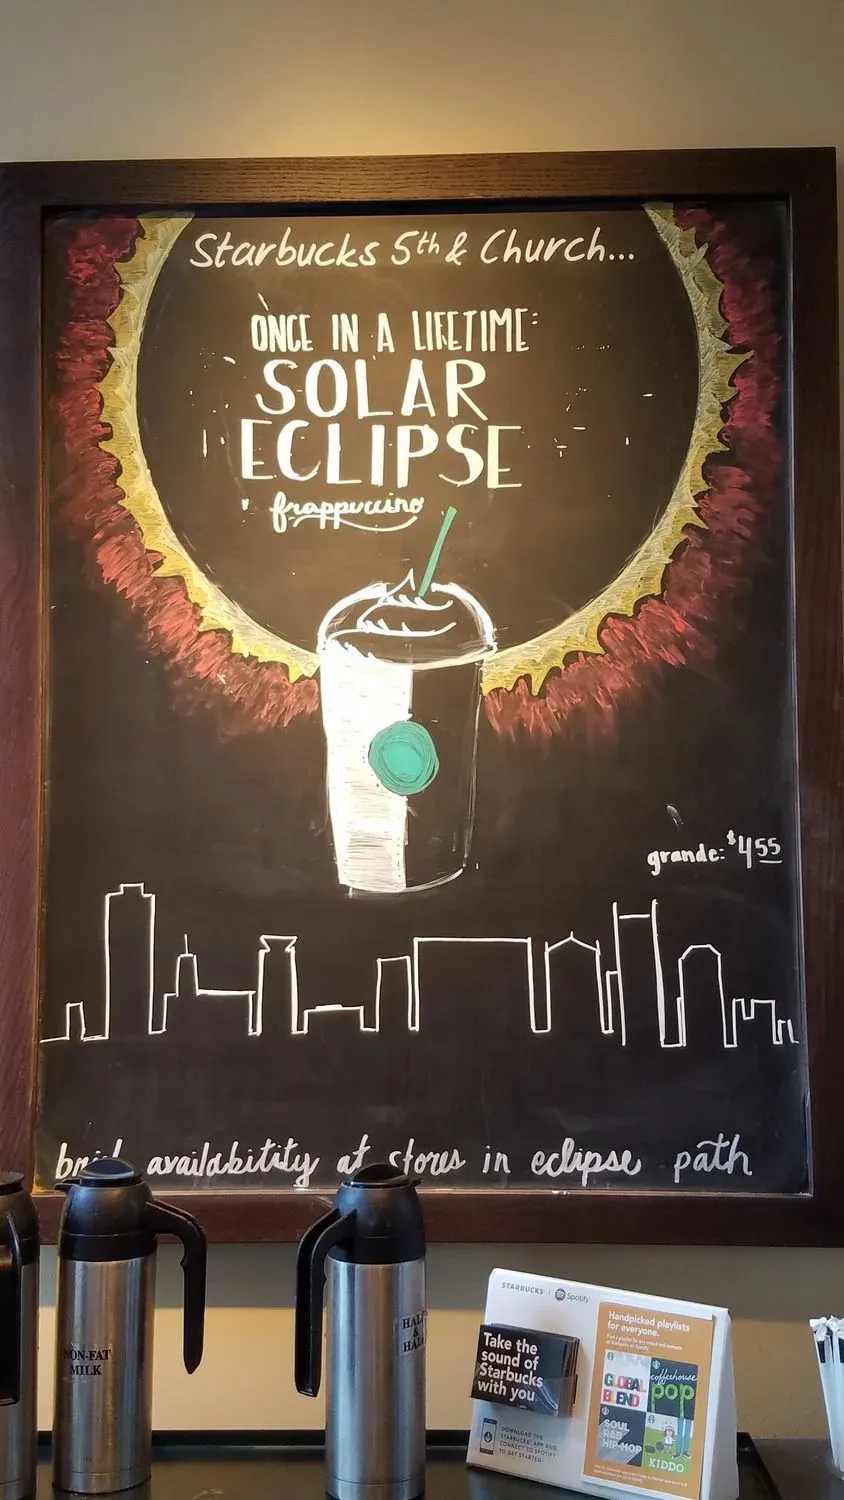 Starbucks 5th & Church...
ONCE IN A LIFETIME:
SOLAR
ECLIPSE
frappuccino
grande: $4.55
brief availability at stores in eclipse path
NON-FAT
MILK
HALF
&
HALF
STARBUCKS | Spotify
Take the
sound of
Starbucks
with you.
DOWNLOAD THE
STARBUCKS® APP AND
CONNECT TO SPOTIFY
TO GET STARTED.
Handpicked playlists
for everyone.
GLOBAL
BLEND
coffeehouse
pop
SOUL
R&B
HIP-HOP
KIDDO